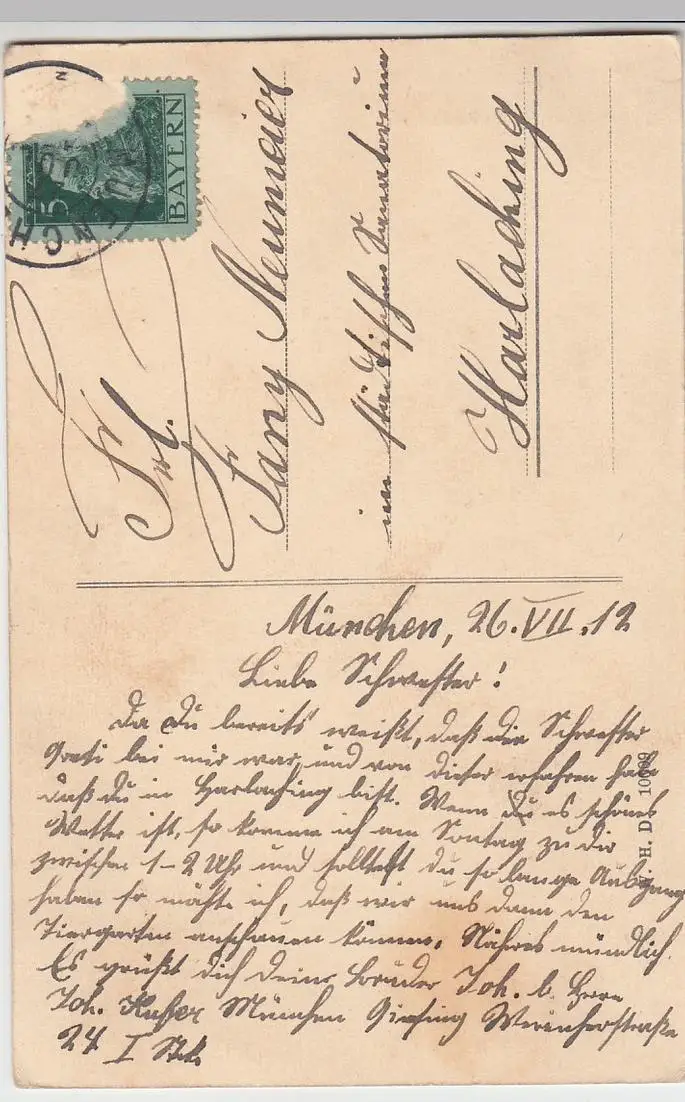 BAYERN
5
MUENCH
Frl.
Fany Neumeier
im städtischen Sanatorium
Harlaching
München, 26.VII.12
Liebe Schwester!
Da Du bereits weißt, daß die Schwester
Greti bei mir war, und von dieser erfahren hab
daß du in Harlaching bist. Wenn es schönes
Wetter ist, so komme ich am Sontag zu dir
zwischen 1-2 Uhr und solltest du so lange Ausgang
haben so möchte ich, daß wir uns dann den
Tiergarten anschauen können. Näheres mündlich.
Es grüßt dich deine Bruder Joh. b. Herrn
Joh. München Giesing Weinherstraße
24 I Stck.
H. D. 10699